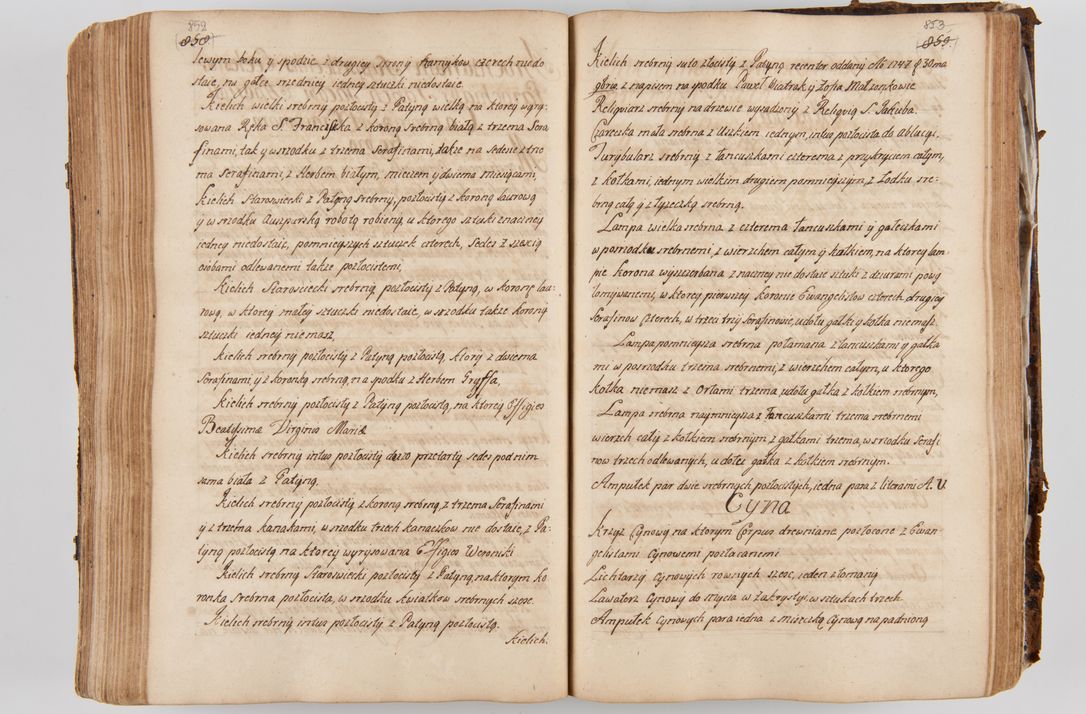 852
858
lewym boku y spodzie z drugiey strony kamykow czerech niedo
staie, na gałce srzedniey iedney sztuczki niedostaie.
Kielich wielki srebrny pozłocisty z Patyną wielką na ktorey wyry-
sowana Ręka S. Franciszka z koroną srebrną białą z trzema Sera
finami, tak y wsrzodku z trzema Serafinami, także na Sedesie z trze
ma Serafinami, z Herbem białym, mieczem y dwiema miesiącami,
Kielich Staroswiecki z Patyną srebrny, pozłocisty z koroną laurową
y w srzodku Auszpurską robotą robioną, u ktorego sztuki znaczney
iedney niedostaie, pomnieyszych sztuczek czterech, Sedes z szescią
osobami odlewanemi także pozłocistemi,
Kielich Staroswiecki srebrny, pozłocisty z Patyną, w koronę lau-
rową, w ktorey małey sztuczki niedostaie, w srzodku także korony
sztuczki iedney nie masz,
Kielich srebrny pozłocisty z Patyną pozłocistą, ktory z dwiema
Serafinami, y z koronką srebrną, na spodku z Herbem Gryffa,
Kielich srebrny pozłocisty z Patyną pozłocistą, na ktorey Effigies
Beatissima Virginis Mariæ
Kielich srebrny intus pozłocisty dozo przetarty sedes pod nim
sama biała z Patyną.
Kielich srebrny pozłocisty z koroną srebrną z trzema Serafinami
y z trzema kanakami, w srzodku trzech kanaczkow nie dostaie, z Pa-
tyną pozłocistą na ktorey wyrysowana Effigies Weroniki
Kielich srebrny Staroswiecki pozłocisty z Patyną, na ktorym ko
ronka srebrna pozłocista, w srzodku kwiatkow srebrnych szesc.
Kielich srebrny intus pozłocisty z Patyną pozłocistą.
Kielich.
853
859
Kielich srebrny suto złocisty z Patyną recenter oddany Ao 1747 d 30 ma
gbris z napisem na spodku Paweł Biatrak y Zofia Małzonkowie
Religviarz srebrny na drzewie wysadzony z Religvią S. Jakuba.
Czareczka mała srebrna z Uszkiem iednym, intus pozłocista do Ablucyi.
Turybularz srebrny z łancuszkami czterema z przykryciem całym,
z kołkami, iednym wielkim drugiem pomnieyszym, z Łodką sre-
brną całą y z łyzeczką srebrną.
Lampa wielka srebrna z czterema łancuszkami y gałeczkami
w posrodku srebrnemi z wierzchem całym y kołkiem, na ktorey lam-
pie korona wyszczerbana z naczney nie dostaie sztuki z dziurami powy
łomywanemi, w ktorey pierwszey koronie Ewangelistow czterech, drugiey
Serafinow czterech, w trzeci trzy Serafinowie, u dołu gałki y kołka nie masz.
Lampa pomnieysza srebrna połamana z łancuszkami y gałka
mi w posrodku trzema srebrnemi, z wierzchem całym, u ktorego
kołka nie masz z Orłami trzema, u dołu gałka z kołkiem srebrnym,
Lampa srebrna naymnieysza z łancuszkami trzema srebrnemi
wierzch cały z kołkiem srebrnym z gałkami trzema, w srzodku Serafi
now trzech odlewanych, u dołu gałka z kołkiem srebrnym.
Ampułek par dwie srebrnych pozłocistych, iedna para z literami A. V
Cyna
Krzyz Cynowy na ktorym Corpus drewniane pozłocone z Ewan-
gelistami Cynowemi pozłacanemi
Lichtarzy Cynowych rownych szesc, ieden złomany
Lawaterz Cynowy do mycia w zakrystyi, w sztukach trzech
Ampułek Cynowych para iedna z miseczką Cynową na padnioną